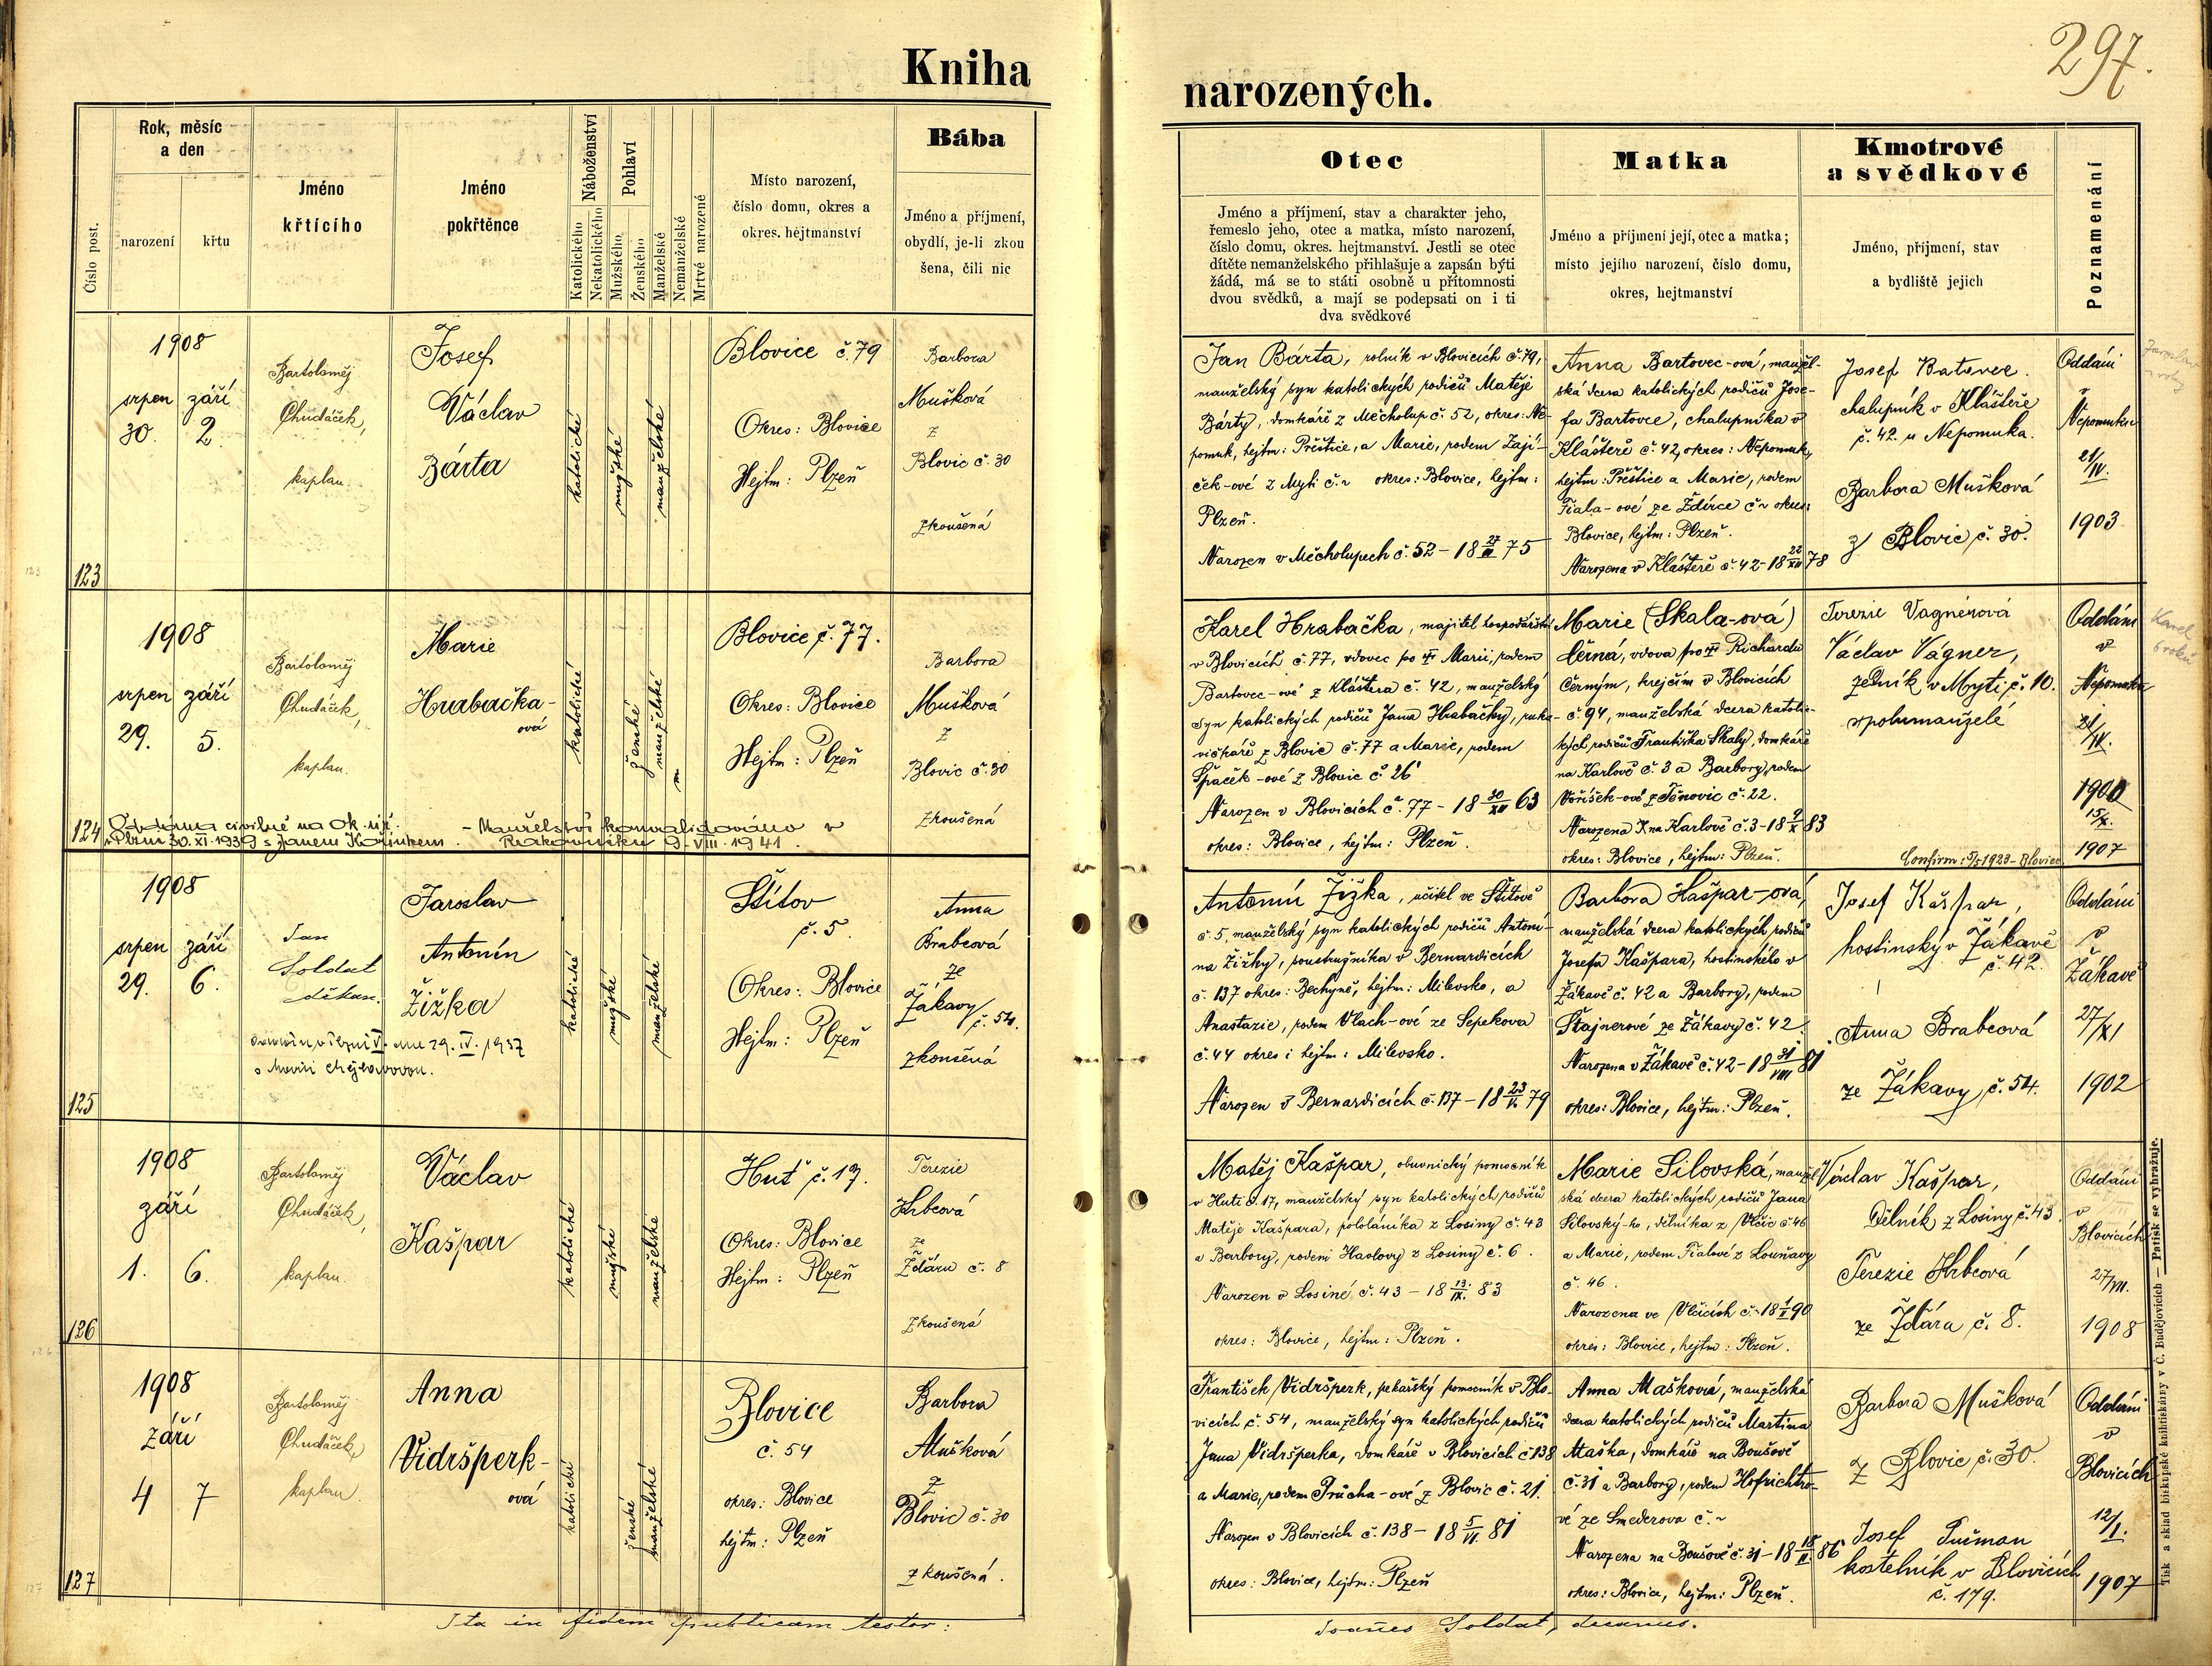 297.
Kniha
narozených.
Číslo post.
Rok, měsíc
a den
narození
křtu
Jméno
křtícího
Jméno
pokřtěnce
Náboženství
Katolického
Nekatolického
Pohlaví
Mužského
Ženského
Manželské
Nemanželské
Mrtvé narozené
Místo narození,
číslo domu, okres a
okres. hejtmanství
Bába
Jméno a příjmení,
obydlí, je-li zkou
šena, čili nic
Otec
Jméno a příjmení, stav a charakter jeho,
řemeslo jeho, otec a matka, místo narození,
číslo domu, okres. hejtmanství. Jestli se otec
dítěte nemanželského přihlašuje a zapsán býti
žádá, má se to státi osobně u přítomnosti
dvou svědků, a mají se podepsati on i ti
dva svědkové
Matka
Jméno a příjmení její, otec a matka;
místo jejího narození, číslo domu,
okres, hejtmanství
Kmotrové
a svědkové
Jméno, příjmení, stav
a bydliště jejich
Poznamenání
123
1908
srpen září
30. 2.
Bartoloměj
Chudáček,
kaplan.
Josef
Václav
Bárta
katolické
mužské
manželské
Blovice č. 79
Okres: Blovice
Hejtm: Plzeň
Barbora
Mušková
z
Blovic č. 30
zkoušená
Jan Bárta, rolník v Blovicích č. 79,
manželský syn katolických rodičů Matěje
Bárty, domkáře z Měcholup č. 52, okres: Ne-
pomuk, hejtm: Přeštice, a Marie, rodem Zají-
ček-ové z Mýti č. ~ okres: Blovice, hejtm:
Plzeň.
Narozen v Měcholupech č. 52 - 18 27 75
Anna Bartovec-ová, manžel-
ská dcera katolických rodičů Jose-
fa Bartovce, chalupníka v
Klášteře č. 42, okres: Nepomuk,
hejtm: Přeštice a Marie, rodem
Fiala-ové ze Ždírce č ~ okres:
Blovice, hejtm: Plzeň.
Narozena v Klášteře č. 42 - 18 22/XII 78
Josef Batovec.
chalupník v Klášteře
č. 42. u Nepomuka.
Barbora Mušková
z Blovic č. 30.
Oddáni
v
Nepomuku
21/IV.
1903
Jaroslav
124
1908
srpen září
29. 5.
Bartoloměj
Chudáček,
kaplan.
Marie
Hrabačka-
ová
katolické
ženské
manželské
Blovice č. 77.
Okres: Blovice
Hejtm: Plzeň
Barbora
Mušková
z
Blovic č. 30
zkoušená
Oddána civilně na Ok.
v Plzni 30. XI. 1939 s Janem Kořínkem. - Manželství konvalidováno v
Rakovníku 9. VIII. 1941.
Karel Hrabačka, majitel hospodářství
v Blovicích č. 77, vdovec po † Marii, rodem
Bartovec-ové z Kláštera č. 42, manželský
syn katolických rodičů Jana Hrabačky, ruka-
vičkáře z Blovic č. 77 a Marie, rodem
Špaček-ové z Blovic č. 26
Narozen v Blovicích č. 77 - 18 30/XII 63
okres: Blovice, hejtm: Plzeň.
Marie (Skala-ová)
Černá, vdova po † Richardu
Černým, krejčím v Blovicích
č. 94, manželská dcera katolic-
kých rodičů Františka Skaly, domkáře
na Karlově č. 3 a Barbory, rodem
Voříšek-ové z Těnovic č. 22.
Narozena na Karlově č. 3 - 18 9/X 83
okres: Blovice, hejtm: Plzeň.
Terezie Vagnerová
Václav Vágner,
zedník v Mýti č. 10.
spolumanželé
Confirm: 5/5 1923 - Blovice
Oddáni
v
Nepomuku
21/IV.
1900
15/X.
1907
Karel
6 roků
125
1908
srpen září
29. 6.
Jan
Soldat
děkan.
Jaroslav
Antonín
Žižka
29. IV. 1937
s Marií
katolické
mužské
manželské
Štítov
č. 5.
Okres: Blovice
Hejtm: Plzeň
Anna
Brabcová
ze
Žákavy
č. 54.
zkoušená
Antonín Žižka, učitel ve Štítově
č. 5, manželský syn katolických rodičů Antoní-
na Žižky, soustružníka v Bernardicích
č. 137 okres: Bechyně, hejtm: Milevsko, a
Anastazie, rodem Vlach-ové ze Sepekova
č. 44 okres i hejtm: Milevsko.
Narozen v Bernardicích č. 137 - 18 23/V. 79
Barbora Kašpar-ová,
manželská dcera katolických rodičů
Josefa Kašpara, hostinského v
Žákavě č. 42 a Barbory, rodem
Štajnerové ze Žákavy č. 42.
Narozena v Žákavě č. 42 - 18 31/VIII 81
okres: Blovice, hejtm: Plzeň.
Josef Kašpar,
hostinský v Žákavě
č. 42.
Anna Brabcová
ze Žákavy č. 54.
Oddáni
v
Žákavě
27/XI
1902
126
1908
září
1. 6.
Bartoloměj
Chudáček,
kaplan.
Václav
Kašpar
katolické
mužské
manželské
Huť č. 17.
Okres: Blovice
Hejtm: Plzeň
Terezie
Hrbcová
ze
Ždáru č. 8
zkoušená
Matěj Kašpar, obuvnický pomocník
v Huti č. 17, manželský syn katolických rodičů
Matěje Kašpara, pololáníka z Losiny č. 43
a Barbory, rodem Havlovy z Losiny č. 6.
Narozen v Losiné č. 43 - 18 13/IX. 83
okres: Blovice, hejtm: Plzeň.
Marie Silovská, manžel-
ská dcera katolických rodičů Jana
Silovský-ho, dělníka z Vlčic č. 46
a Marie, rodem Fialové z Louňavy
č. 46.
Narozena ve Vlčicích č. ~ 18 1/V 90
okres: Blovice, hejtm: Plzeň.
Václav Kašpar,
dělník z Losiny č. 43.
Terezie Hrbcová
ze Ždára č. 8.
Oddáni
v
Blovicích
27/VII.
1908
127
1908
září
4 7
Bartoloměj
Chudáček,
kaplan.
Anna
Vidršperk-
ová
katolické
ženské
manželské
Blovice
č. 54
okres: Blovice
hejtm: Plzeň
Barbora
Mušková
z
Blovic č. 30
zkoušená.
František Vidršperk, pekařský pomocník v Blo-
vicích č. 54, manželský syn katolických rodičů
Jana Vidršperka, domkáře v Blovicích č. 138
a Marie, rodem Průcha-ové z Blovic č. 21.
Narozen v Blovicích č. 138 - 18 5/VI. 81
okres: Blovice, hejtm: Plzeň
Anna Mašková, manželská
dcera katolických rodičů Martina
Maška, domkáře na Boušově
č. 31 a Barbory, rodem Hofrichtro-
vé ze Smederova č. ~
Narozena na Boušově č. 31 - 18 18/II. 86
okres: Blovice, hejtm: Plzeň.
Barbora Mušková
z Blovic č. 30.
Josef Pučman
kostelník v Blovicích
č. 179.
Oddáni
v
Blovicích
12/I.
1907
Ita in fidem publicam testor:
Joañes Soldat, decanus.
Tisk a sklad biskupské knihtiskárny v Č. Budějovicích — Patisk se vyhražuje.